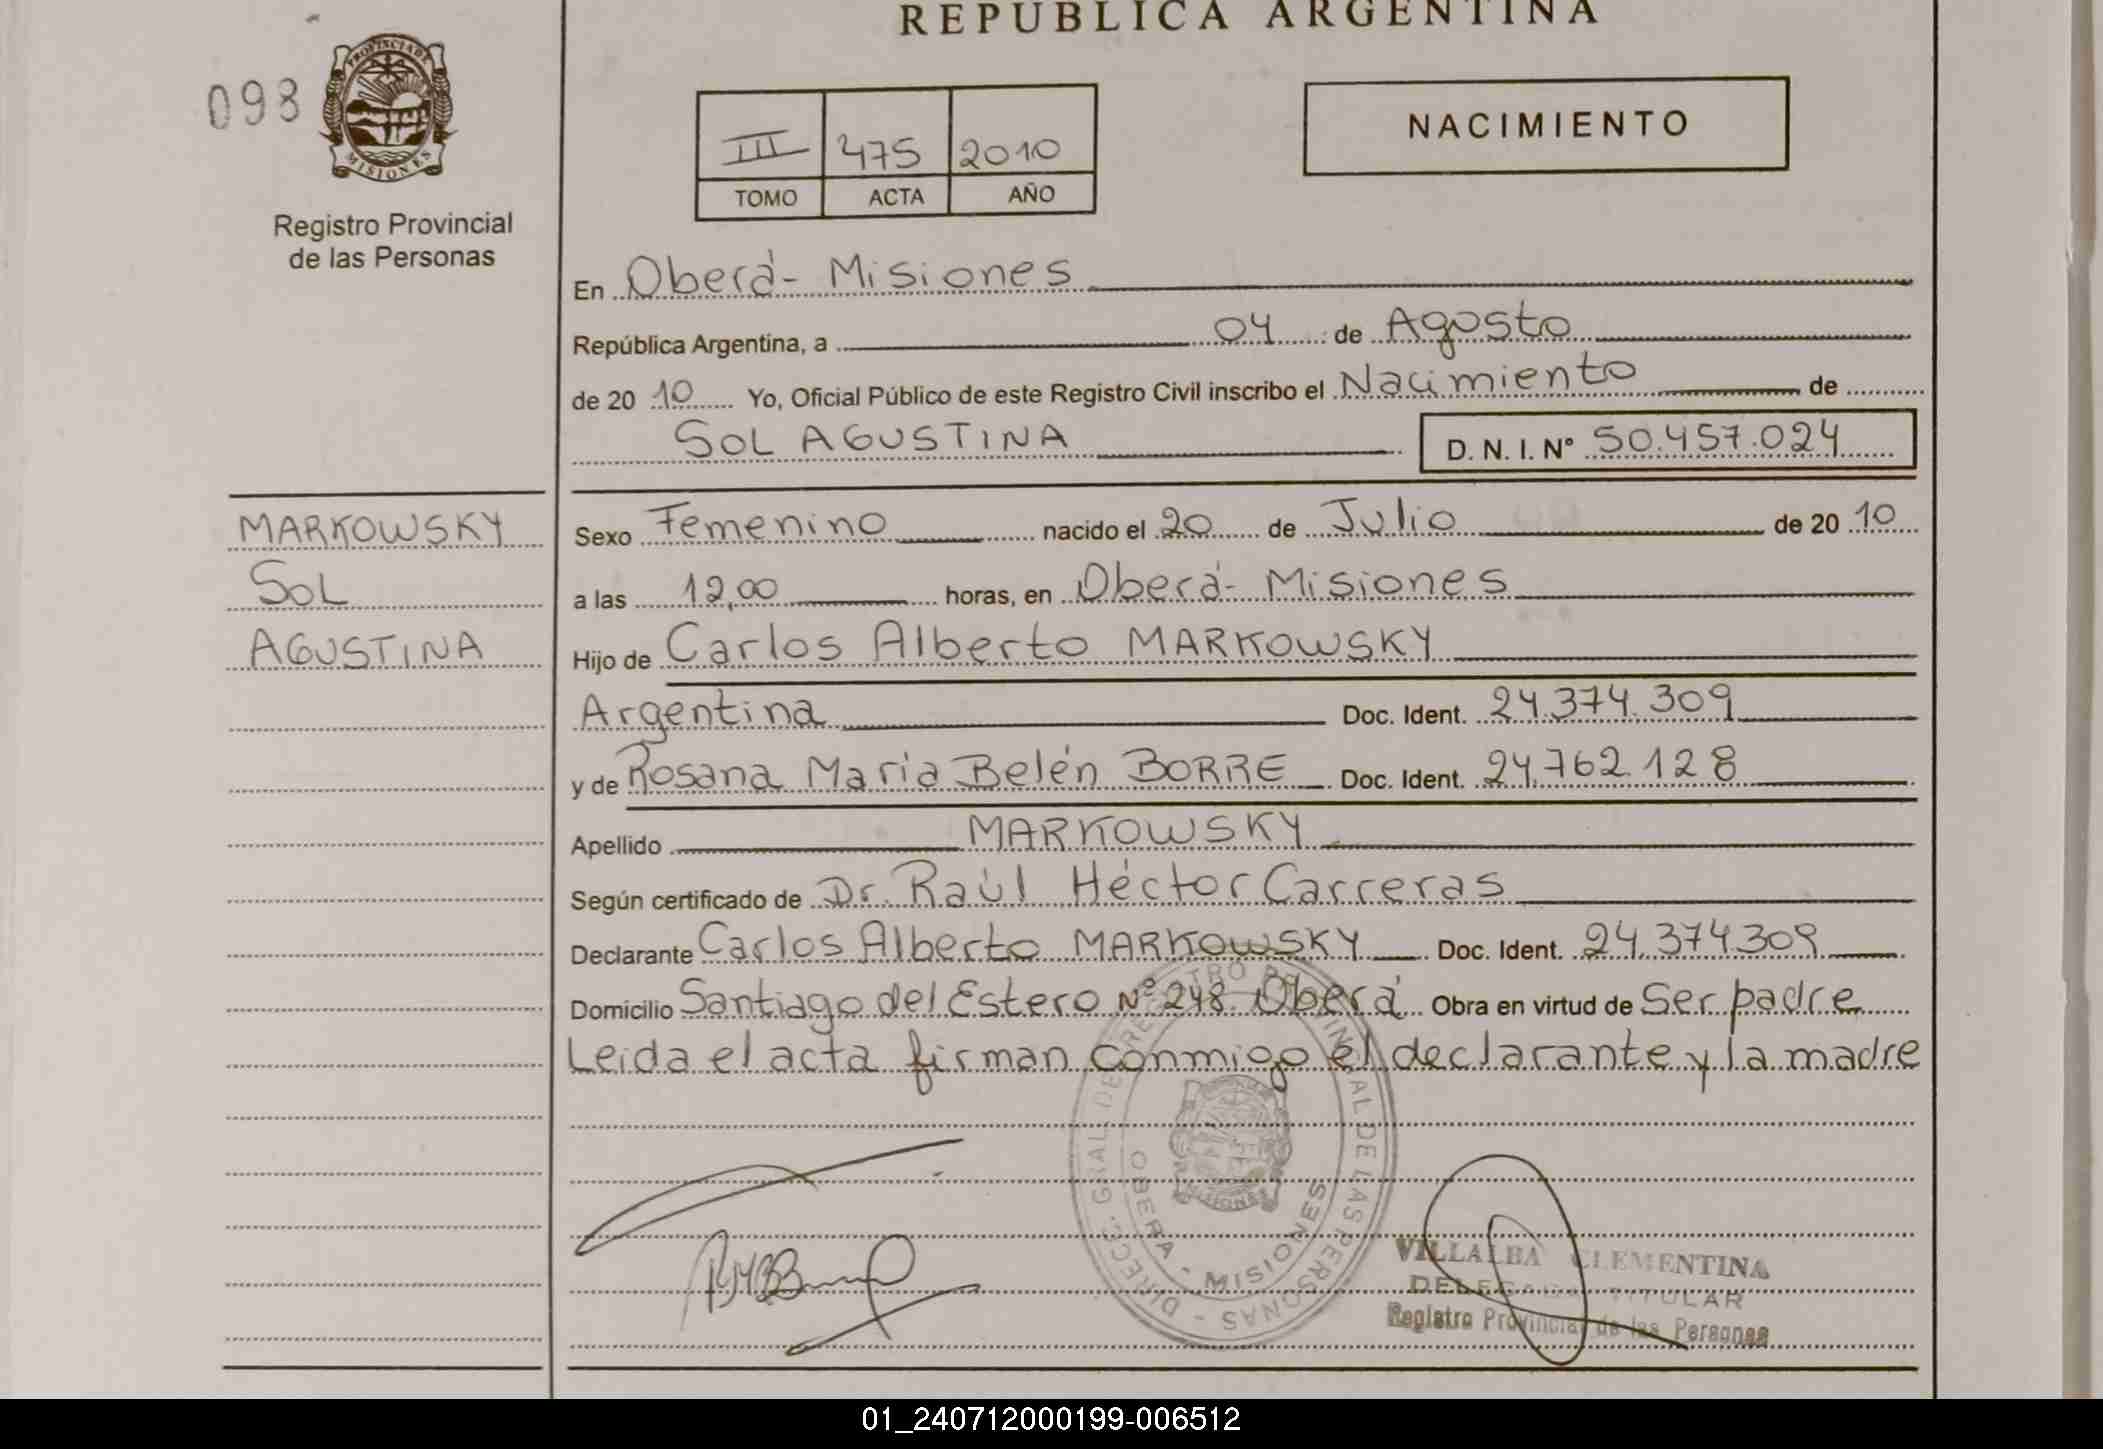 REPUBLICA ARGENTINA
098
PROVINCIA DE
MISIONES
Registro Provincial
de las Personas
III 475 2010
TOMO ACTA AÑO
NACIMIENTO
En Oberá - Misiones
República Argentina, a 04 de Agosto
de 20 10 Yo, Oficial Público de este Registro Civil inscribo el Nacimiento de
SOL AGUSTINA D. N. I. Nº 50.457.024
MARKOWSKY
SOL
AGUSTINA
Sexo Femenino nacido el 20 de Julio de 20 10
a las 12,00 horas, en Oberá - Misiones
Hijo de Carlos Alberto MARKOWSKY
Argentina Doc. Ident. 24.374.309
y de Rosana María Belén BORRE Doc. Ident. 24.762.128
Apellido MARKOWSKY
Según certificado de Dr. Raúl Héctor Carreras
Declarante Carlos Alberto MARKOWSKY Doc. Ident. 24.374.309
Domicilio Santiago del Estero Nº 248. Oberá Obra en virtud de Ser padre
Leida el acta firman conmigo el declarante y la madre
DIRECC. GRAL. DE REGISTRO PROVINCIAL DE LAS PERSONAS -
OBERA - MISIONES
VILLALBA CLEMENTINA
DELEGADA TITULAR
Registro Provincial de las Personas
01_240712000199-006512